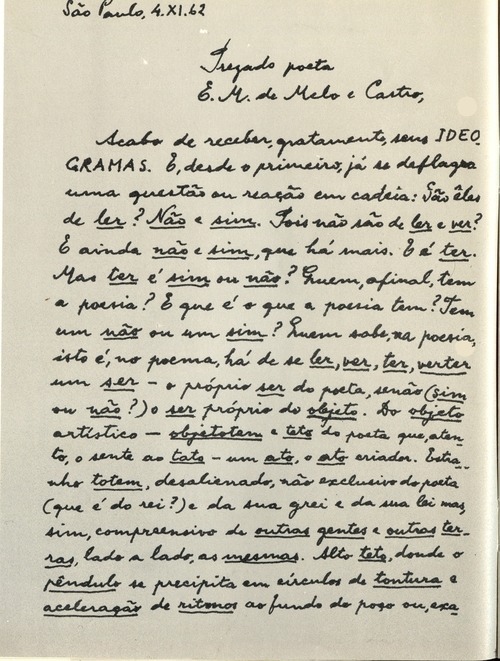 São Paulo, 4.XI.62
Prezado poeta
E. M. de Melo e Castro,
Acabo de receber, gratamente, seus IDEO
GRAMAS. E, desde o primeiro, já se deflagra
uma questão ou reação em cadeia: São êles
de ler? Não e sim. Pois não são de ler e ver?
E ainda não e sim, que há mais. E é ter.
Mas ter é sim ou não? Quem, afinal, tem
a poesia? E que é o que a poesia tem? Tem
um não ou um sim? Quem sabe, na poesia,
isto é, no poema, há de se ler, ver, ter, verter
um ser – o próprio ser do poeta, senão (sim
ou não?) o ser próprio do objeto. Do objeto
artístico – objetotem e teto do poeta que, aten
to, o sente ao tato – um ato, o ato criador. Estra-
nho totem, desalienado, não exclusivo do poeta
(que é do rei?) e da sua grei e da sua lei mas,
sim, compreensivo de outras gentes e outras ter-
ras, lado a lado, as mesmas. Alto teto, donde o
pêndulo se precipita em círculos de tontura e
aceleração de ritmos ao fundo do poço ou, exa